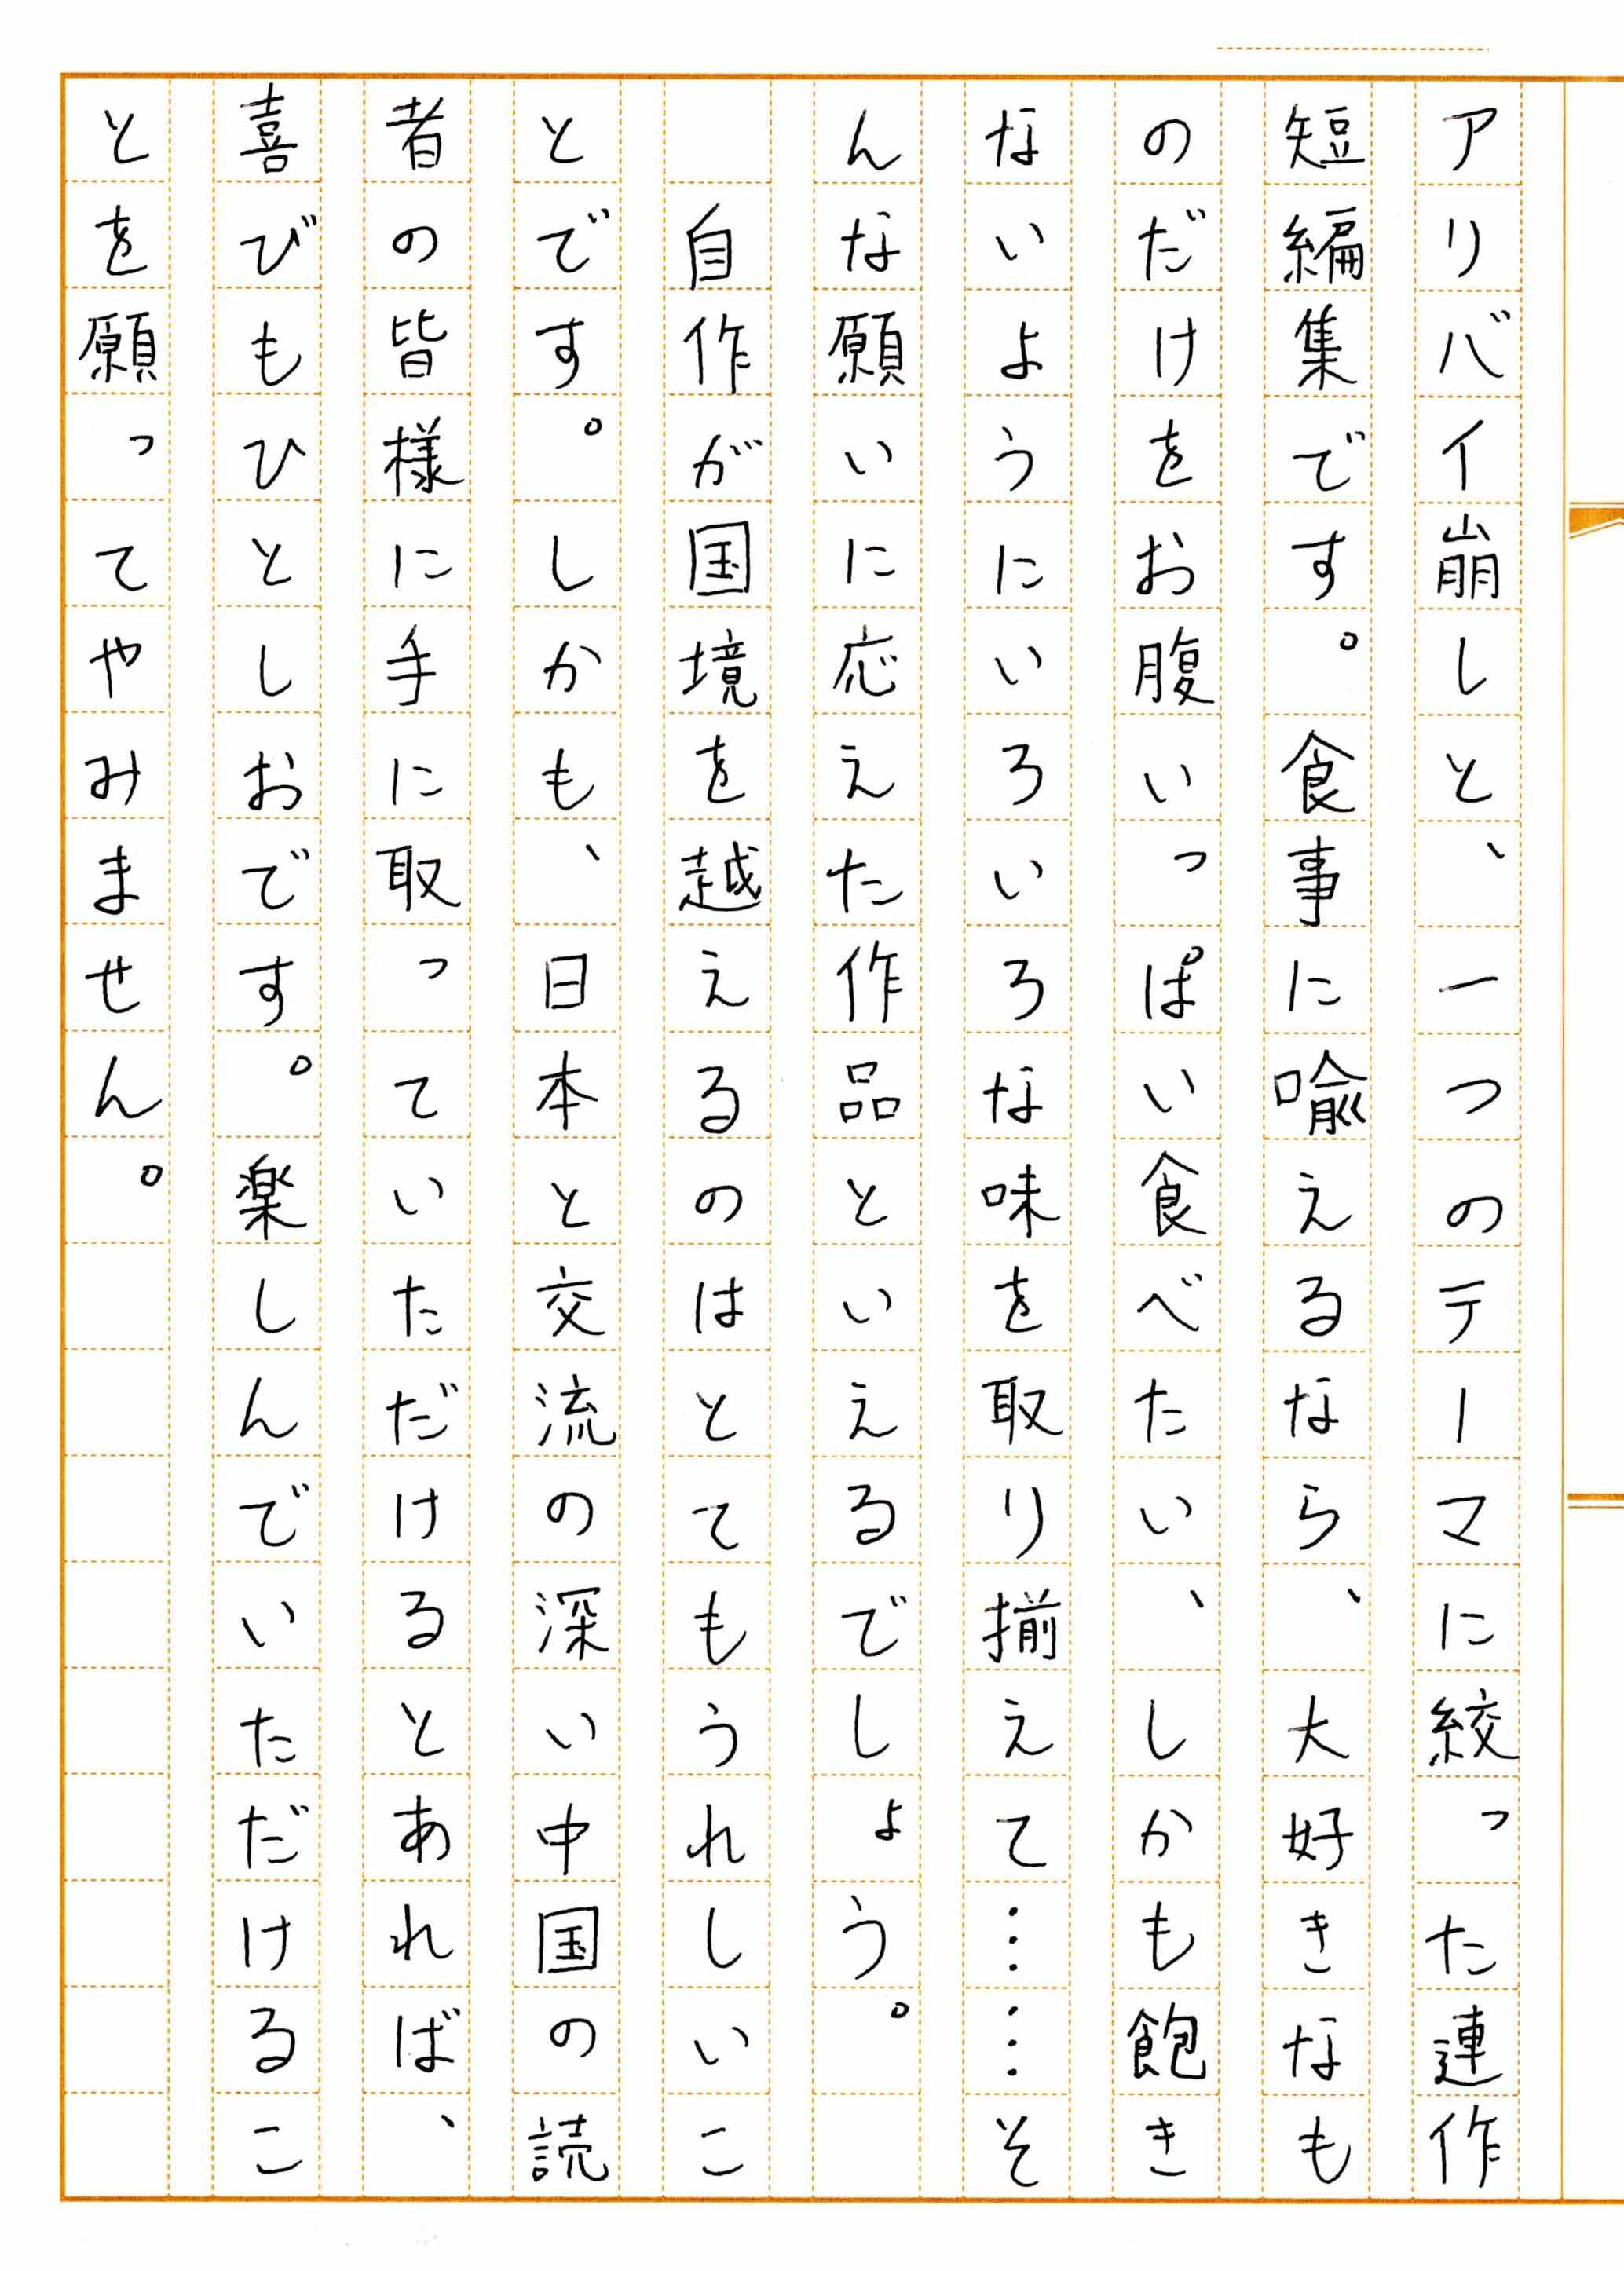 アリバイ崩しと、一つのテーマに絞った連作
短編集です。食事に喩えるなら、大好きなも
のだけをお腹いっぱい食べたい、しかも飽き
ないようにいろいろな味を取り揃えて……そ
んな願いに応えた作品といえるでしょう。
自作が国境を越えるのはとてもうれしいこ
とです。しかも、日本と交流の深い中国の読
者の皆様に手に取っていただけるとあれば、
喜びもひとしおです。楽しんでいただけるこ
とを願ってやみません。